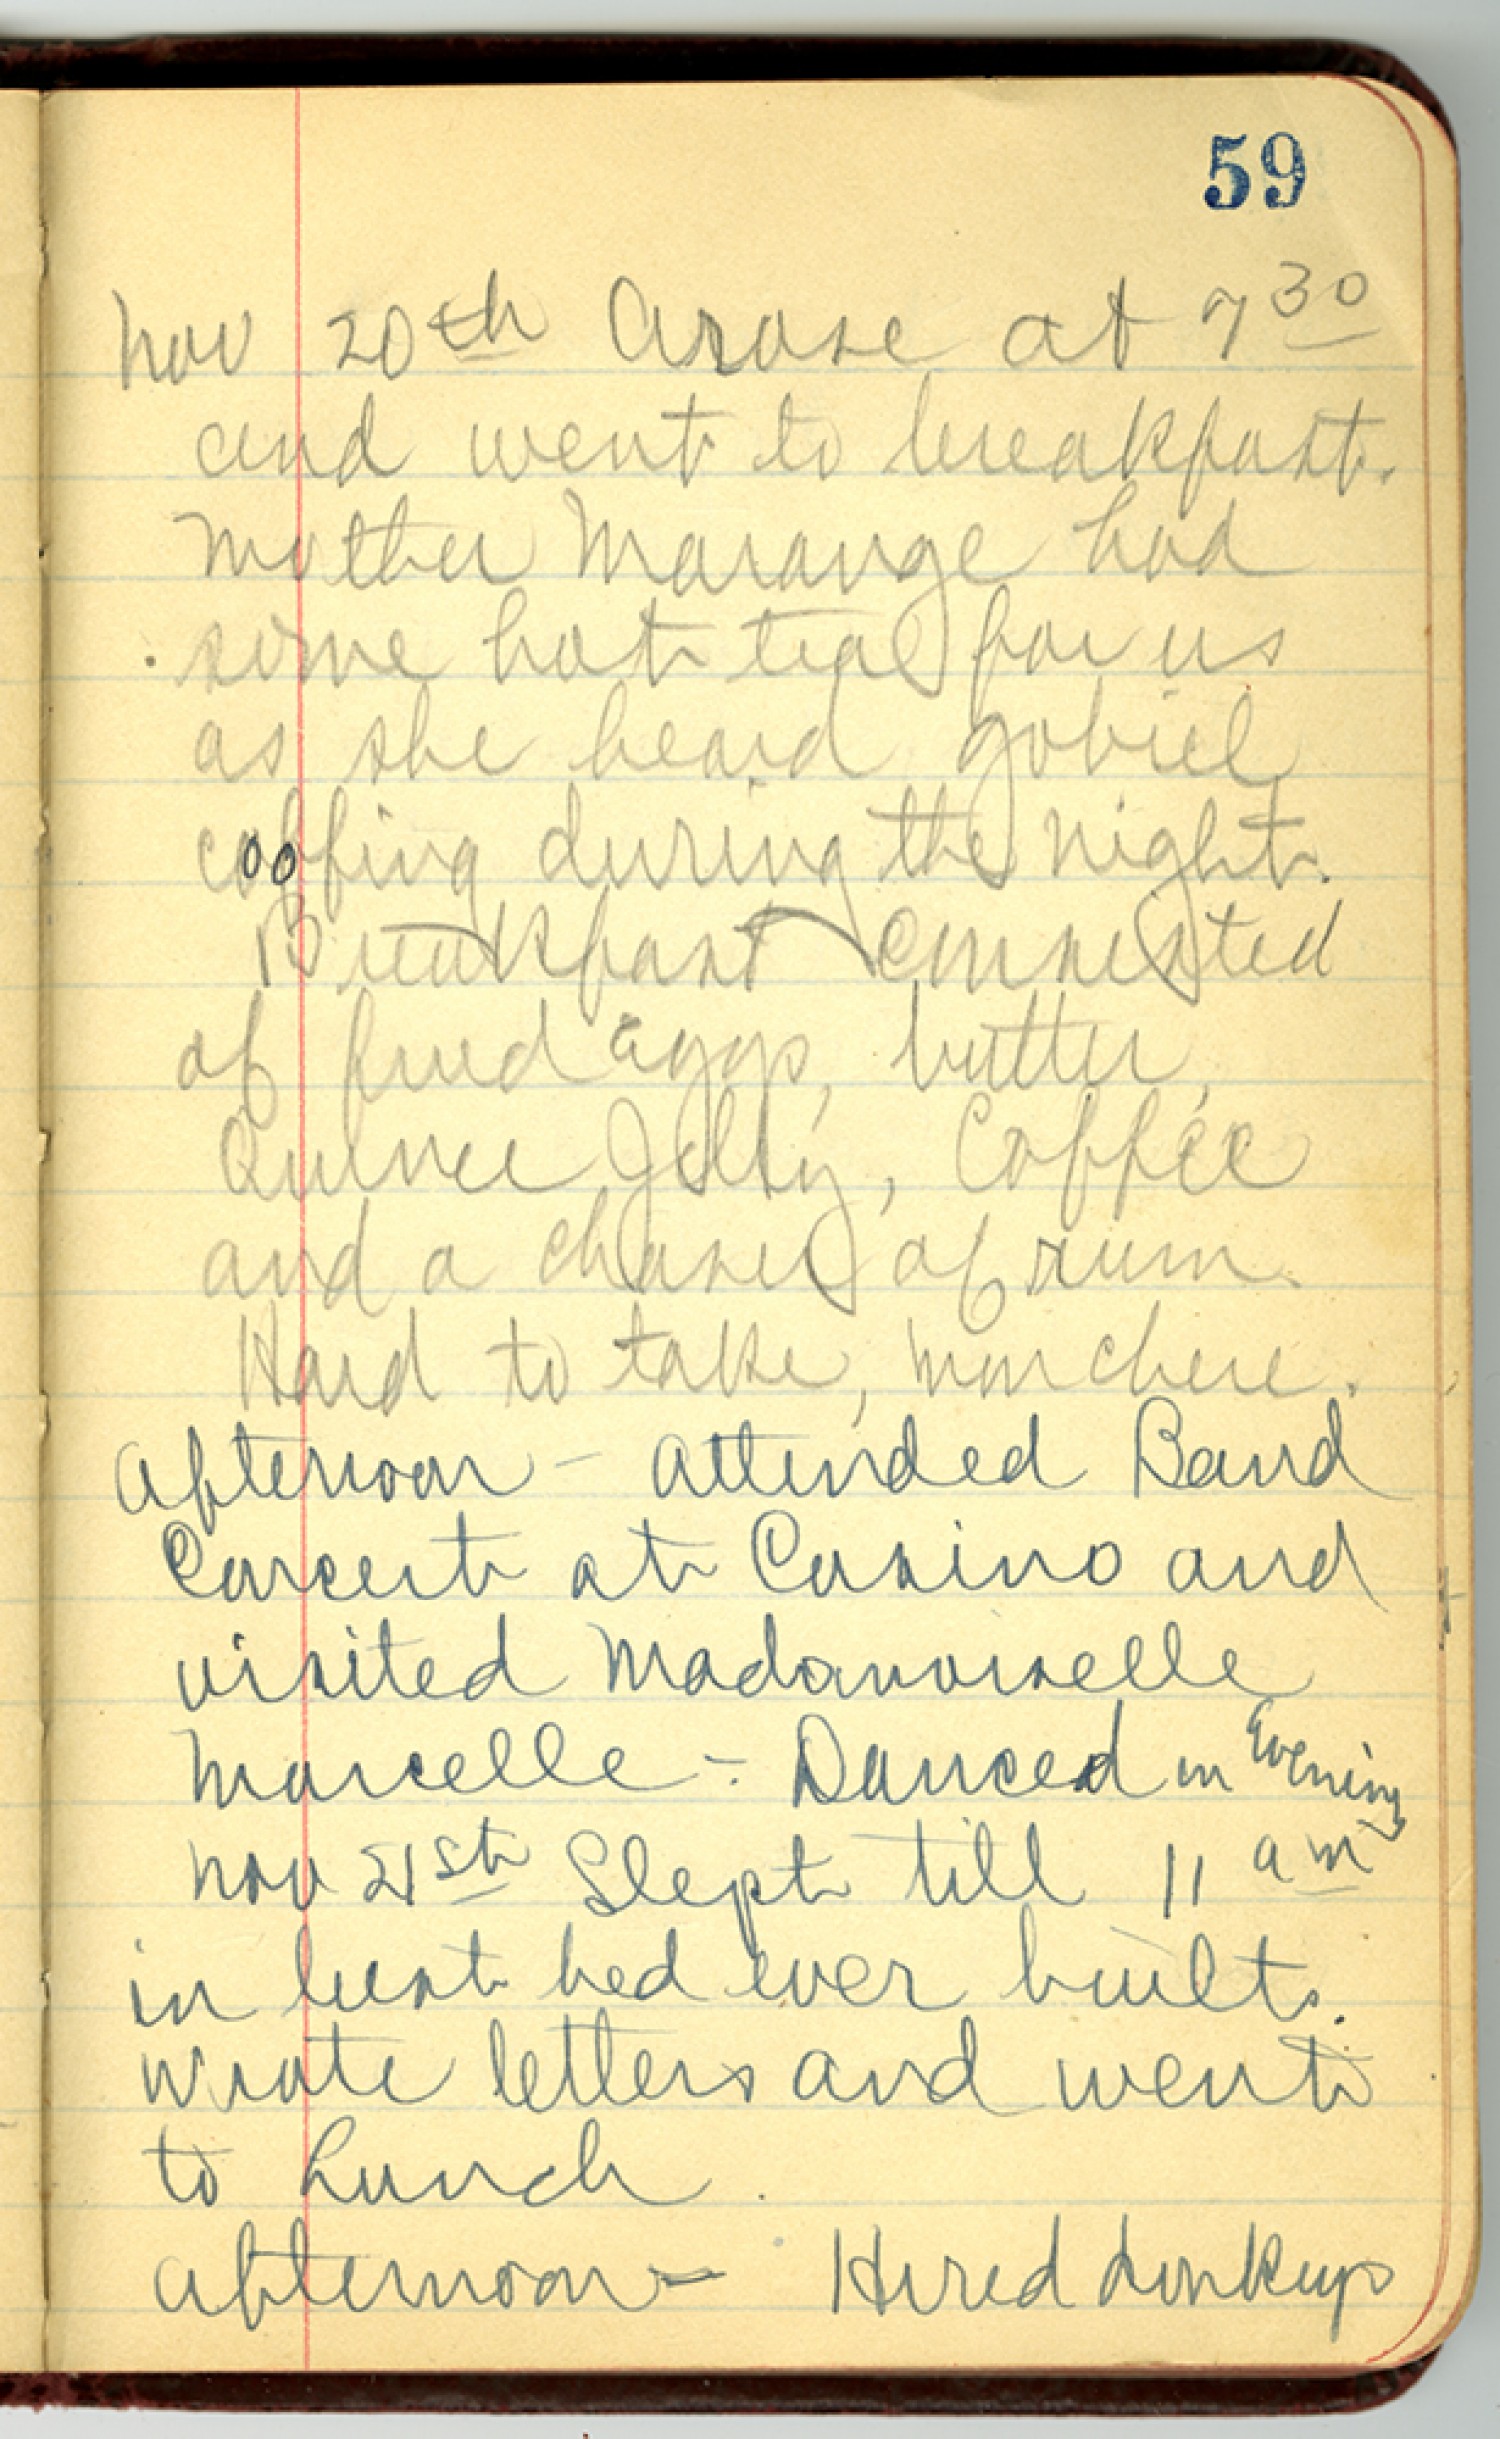 59
Nov 20th Arose at 7 30
and went to breakfast.
Mother Marange had
some hot tea for us
as she heard Gobiel
coffing during the night.
Breakfast consisted
of fried eggs, butter,
Quince Jelly, Coffee
and a chaser of rum.
Hard to take, mon chere.
Afternoon - Attended Band
Concert at Casino and
visited Madamoiselle
Marcelle - Danced in Evening
Nov 21st Slept till 11 am
in best bed ever built.
Wrote letters and went
to Lunch.
Afternoon - Hired donkeys